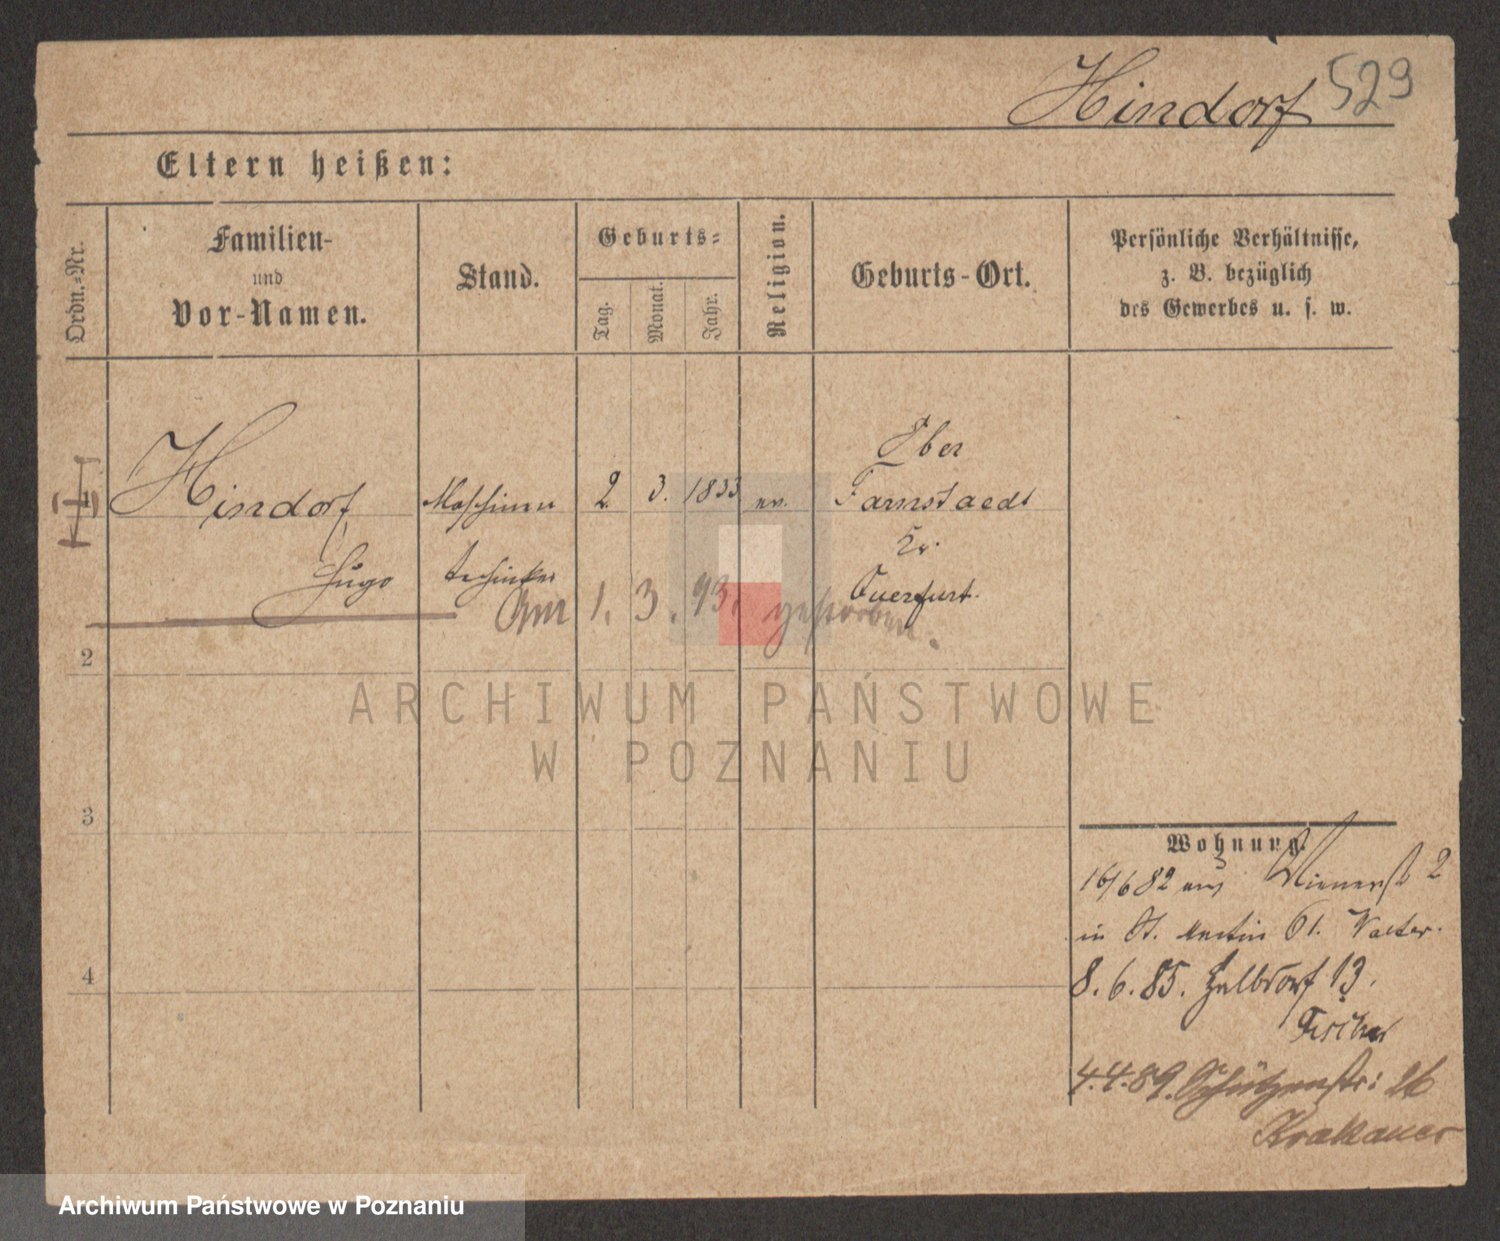 Hindorf 529
Eltern heißen:
Ordn.-Nr.
Familien-
und
Vor-Namen.
Stand.
Geburts-
Tag.
Monat.
Jahr.
Religion.
Geburts-Ort.
Persönliche Verhältnisse,
z. B. bezüglich
des Gewerbes u. s. w.
1
Hindorf
Hugo
Maschinen
techniker
2. 3. 1833 ev.
Ober
Farnstaedt
Kr.
Querfurt.
Am 1. 3. 93. gestorben.
2
3
4
Wohnung.
16/6 82 aus Wienerst 2
in St. Martin 61. Walter.
8. 6. 85. Halbdorf 13.
Fischer
4.4.89. Schützenstr: 26
Krakauer
ARCHIWUM PAŃSTWOWE
W POZNANIU
Archiwum Państwowe w Poznaniu